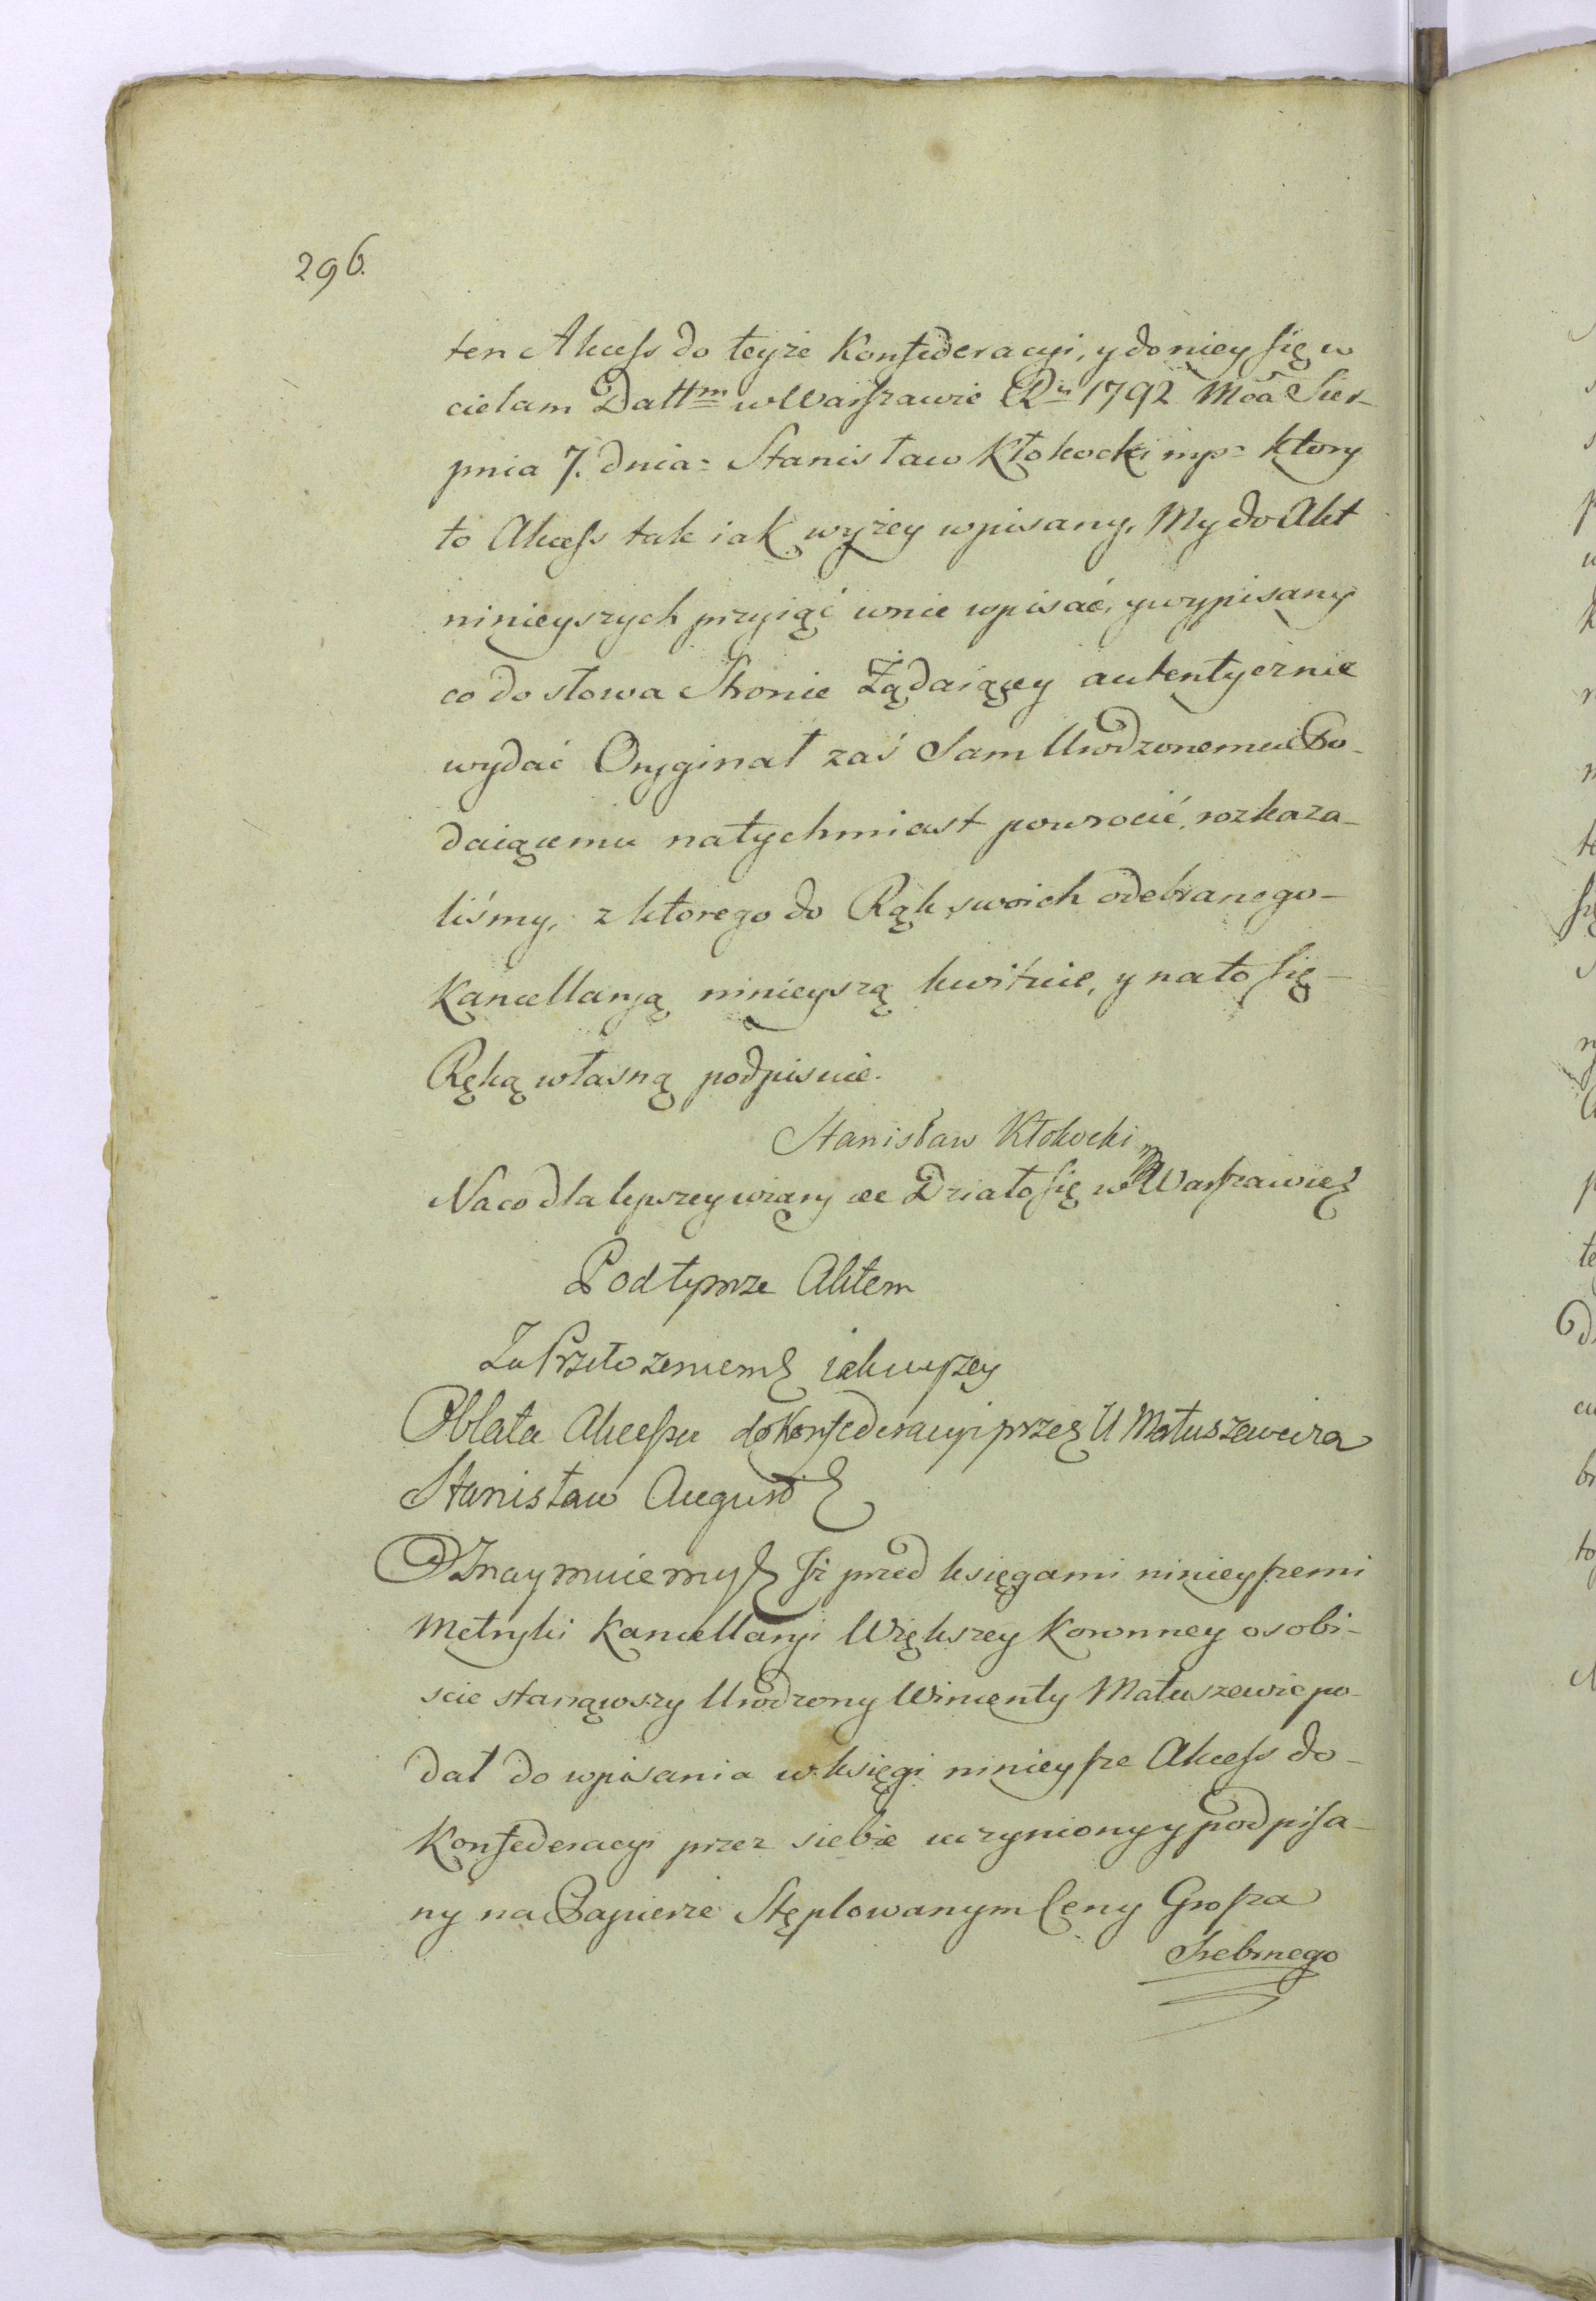 296.
ten Akcess do teyże Konfederacyi, y do niey się w
cielam Datt<sup>m</sup> w Warszawie R<sup>u</sup> 1792 Mca Sier-
pnia 7. dnia= Stanisław Kłokocki mp= ktory
to Akcess tak iak wyżey wpisany, My do Akt
ninieyszych przyiąć w nie wpisać, y wypisany
co do słowa Stronie Żądaiącey autentycznie
wydać Oryginał zaś Sam Urodzonemu Po-
daiącemu natychmiast powrocić, rozkaza-
liśmy, z ktorego do Rąk swoich odebranego-
Kancellaryą ninieyszą kwituie, y na to się-
Ręką własną podpisuie.
Stanisław Kłokocki mp
Na co dla lepszey wiary &c Działo się w Warszawie
Pod tymże Aktem
Za Przełożeniem iak wyżey
Oblata Akcessu do Konfederacyi przez U Matuszewica
Stanisław August
Oznaymuiemy Iż przed księgami ninieyszemi
Metryki Kancellaryi Większey Koronney osobi-
scie stanąwszy Urodzony Wincenty Matuszewic po-
dał do wpisania w księgi ninieysze Akcess do-
Konfederacyi przez siebie uczyniony y podpisa-
ny na Papierze Stęplowanym Ceny Grosza
Srebrnego